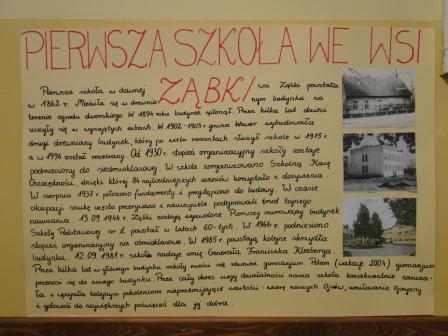 PIERWSZA SZKOŁA WE WSI
ZĄBKI
Pierwsza szkoła w dawnej wsi Ząbki powstała
w 1862 r. Mieściła się w drewnianym budynku na
terenie ogrodu dworskiego. W 1894 roku budynek spłonął. Przez kilka lat dzieci
uczyły się w wynajętych izbach. W 1902-1903 r. gmina Wawer wybudowała
drugi drewniany budynek, który po wielu remontach służył szkole w 1975 r.
a w 1996 został rozebrany. Od 1930 r. stopień organizacyjny szkoły zostaje
podniesiony do siedmioklasowej. W szkole zorganizowano Szkolną Kasę
Oszczędności, dzięki której 84 najbiedniejszych uczniów korzystało z dożywienia.
W sierpniu 1937 r. położono fundamenty i przystąpiono do budowy. W czasie
okupacji naukę często przerywano i nauczyciele podejmowali trud tajnego
nauczania. 13.09.1944 r. Ząbki zostają wyzwolone. Pierwszy murowany budynek
Szkoły Podstawowej nr 1 powstał w latach 60-tych. W 1966 r. podniesiono
stopień organizacyjny na ośmioklasowe. W 1985 r. powstają kolejne skrzydła
budynku. 12.09.1981 r. szkoła nadaje imię Generała Franciszka Kleeberga.
Przez kilka lat w głównym budynku szkoły mieściło się również gimnazjum. Potem (wakacje 2004) gimnazjum
przenosi się do nowego budynku. Przez cały okres swojej działalności nasza szkoła konsekwentnie naucza
i wpajała kolejnym pokoleniom nieprzemijające wartości: wiarę naszych Ojców, umiłowanie Ojczyzny
i gotowość do największych poświęceń dla jej dobra.